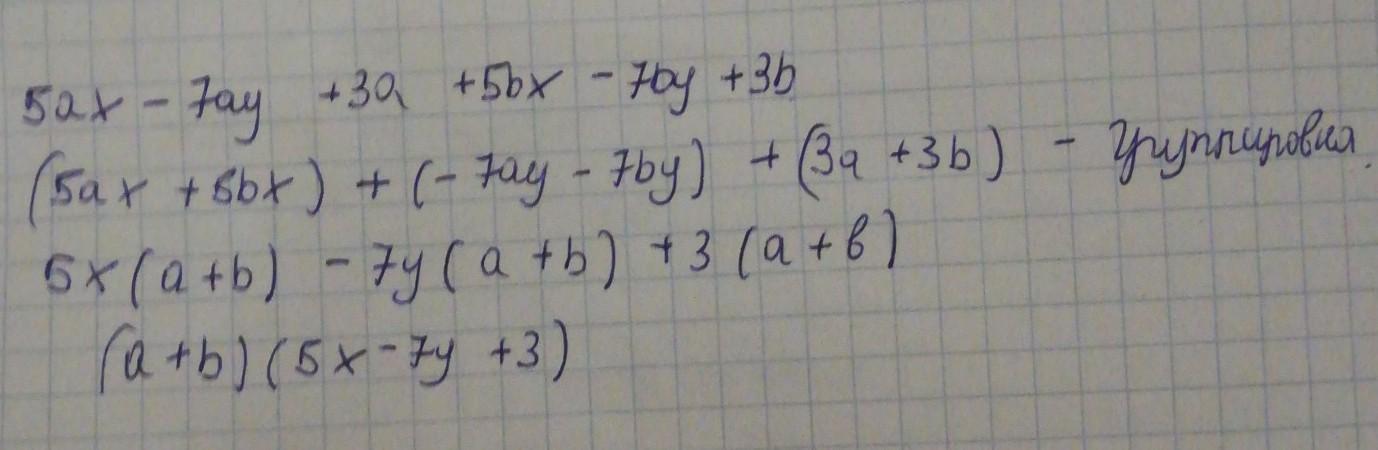 5ax - 7ay +3a +5bx - 7by +3b
(5ax +5bx) + (-7ay - 7by) + (3a +3b) - Группировка.
5x(a+b) - 7y(a+b) +3(a+b)
(a+b)(5x-7y +3)